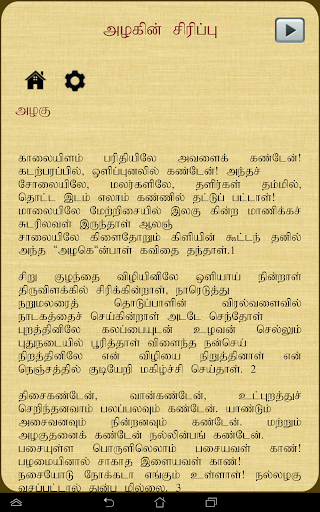 அழகின் சிரிப்பு
அழகு
காலையிளம் பரிதியிலே அவளைக் கண்டேன்!
கடற்பரப்பில், ஒளிப்புனலில் கண்டேன்! அந்தச்
சோலையிலே, மலர்களிலே, தளிர்கள் தம்மில்,
தொட்ட இடம் எலாம் கண்ணில் தட்டுப் பட்டாள்!
மாலையிலே மேற்றிசையில் இலகு கின்ற மாணிக்கச்
சுடரிலவள் இருந்தாள் ஆலஞ்
சாலையிலே கிளைதோறும் கிளியின் கூட்டந் தனில்
அந்த "அழகெ"ன்பாள் கவிதை தந்தாள்.1
சிறு குழந்தை விழியினிலே ஒளியாய் நின்றாள்
திருவிளக்கில் சிரிக்கின்றாள், நாரெடுத்து
நறுமலரைத் தொடுப்பாளின் விரல்வளைவில்
நாடகத்தைச் செய்கின்றாள் அடடே செந்தோள்
புறத்தினிலே கலப்பையுடன் உழவன் செல்லும்
புதுநடையில் பூரித்தாள் விளைந்த நன்செய்
நிறத்தினிலே என் விழியை நிறுத்தினாள் என்
நெஞ்சத்தில் குடியேறி மகிழ்ச்சி செய்தாள். 2
திசைகண்டேன், வான்கண்டேன், உட்புறத்துச்
செறிந்தனவாம் பலப்பலவும் கண்டேன். யாண்டும்
அசைவனவும் நின்றனவும் கண்டேன். மற்றும்
அழகுதனைக் கண்டேன் நல்லின்பங் கண்டேன்.
பசையுள்ள பொருளிலெலாம் பசையவள் காண்!
பழமையினால் சாகாத இளையவள் காண்!
நசையோடு நோக்கடா எங்கும் உள்ளாள்! நல்லழகு
வசப்பட்டால் துன்ப மில்லை. 3